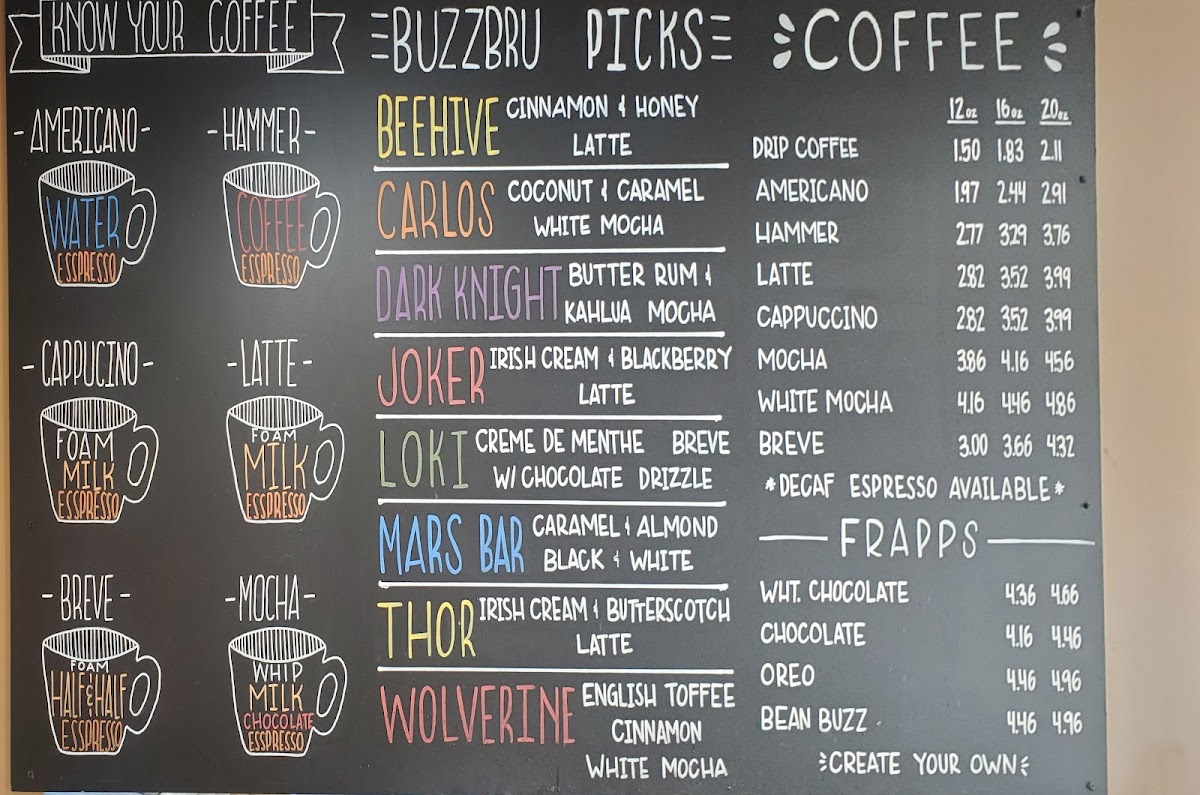 KNOW YOUR COFFEE
-AMERICANO-
WATER
ESSPRESSO
-HAMMER-
COFFEE
ESSPRESSO
-CAPPUCINO-
FOAM
MILK
ESSPRESSO
-LATTE-
FOAM
MILK
ESSPRESSO
-BREVE-
FOAM
HALF & HALF
ESSPRESSO
-MOCHA-
WHIP
MILK
CHOCOLATE
ESSPRESSO
BUZZBRU PICKS
BEEHIVE CINNAMON & HONEY
LATTE
CARLOS COCONUT & CARAMEL
WHITE MOCHA
DARK KNIGHT BUTTER RUM &
KAHLUA MOCHA
JOKER IRISH CREAM & BLACKBERRY
LATTE
LOKI CREME DE MENTHE BREVE
W/ CHOCOLATE DRIZZLE
MARS BAR CARAMEL & ALMOND
BLACK & WHITE
THOR IRISH CREAM & BUTTERSCOTCH
LATTE
WOLVERINE ENGLISH TOFFEE
CINNAMON
WHITE MOCHA
COFFEE
12oz 16oz 20oz
DRIP COFFEE 1.50 1.83 2.11
AMERICANO 1.97 2.44 2.91
HAMMER 2.77 3.29 3.76
LATTE 2.82 3.52 3.99
CAPPUCCINO 2.82 3.52 3.99
MOCHA 3.86 4.16 4.56
WHITE MOCHA 4.16 4.46 4.86
BREVE 3.00 3.66 4.32
*DECAF ESPRESSO AVAILABLE*
FRAPPS
WHT. CHOCOLATE 4.36 4.66
CHOCOLATE 4.16 4.46
OREO 4.46 4.96
BEAN BUZZ 4.46 4.96
CREATE YOUR OWN